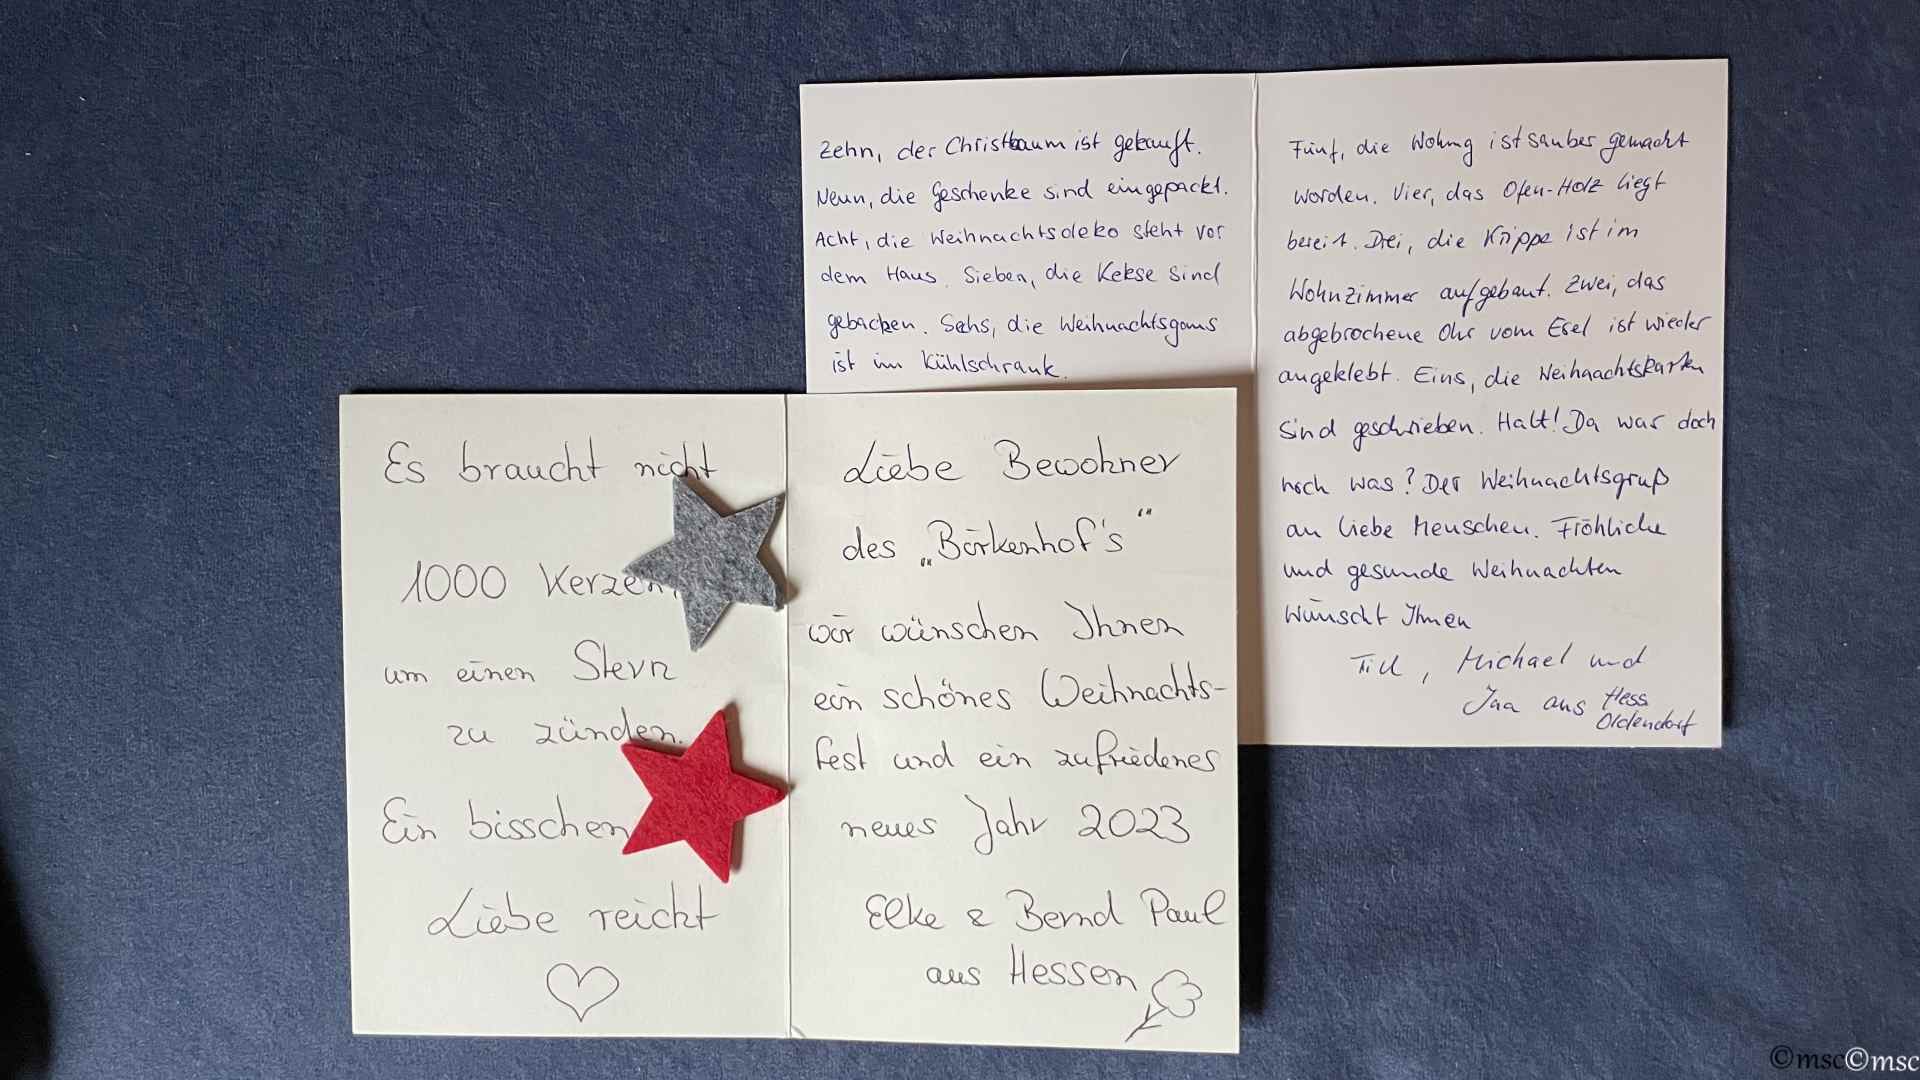 Zehn, der Christbaum ist gekauft.
Neun, die Geschenke sind eingepackt.
Acht, die Weihnachtsdeko steht vor
dem Haus. Sieben, die Kekse sind
gebacken. Sechs, die Weihnachtsgans
ist im Kühlschrank.
Fünf, die Wohnung ist sauber gemacht
worden. Vier, das Ofen-Holz liegt
bereit. Drei, die Krippe ist im
Wohnzimmer aufgebaut. Zwei, das
abgebrochene Ohr vom Esel ist wieder
angeklebt. Eins, die Weihnachtskarten
sind geschrieben. Halt! Da war doch
noch was? Der Weihnachtsgruß
an liebe Menschen. Fröhliche
und gesunde Weihnachten
wünscht Ihnen
Till, Michael und
aus Hess
Oldendorf
Es braucht nicht
1000 Kerzen,
um einen Stern
zu zünden.
Ein bisschen
Liebe reicht
Liebe Bewohner
des „Börkenhof's“
wir wünschen Ihnen
ein schönes Weihnachts-
fest und ein zufriedenes
neues Jahr 2023
Elke & Bernd Paul
aus Hessen
©msc©msc